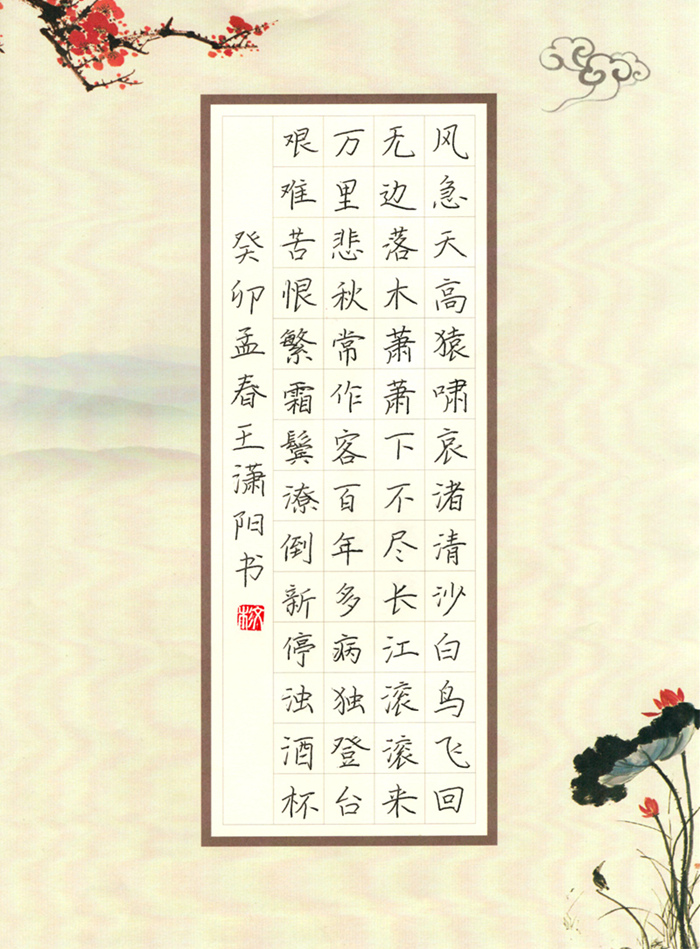 风急天高猿啸哀渚清沙白鸟飞回
无边落木萧萧下不尽长江滚滚来
万里悲秋常作客百年多病独登台
艰难苦恨繁霜鬓潦倒新停浊酒杯
癸卯孟春王潇阳书